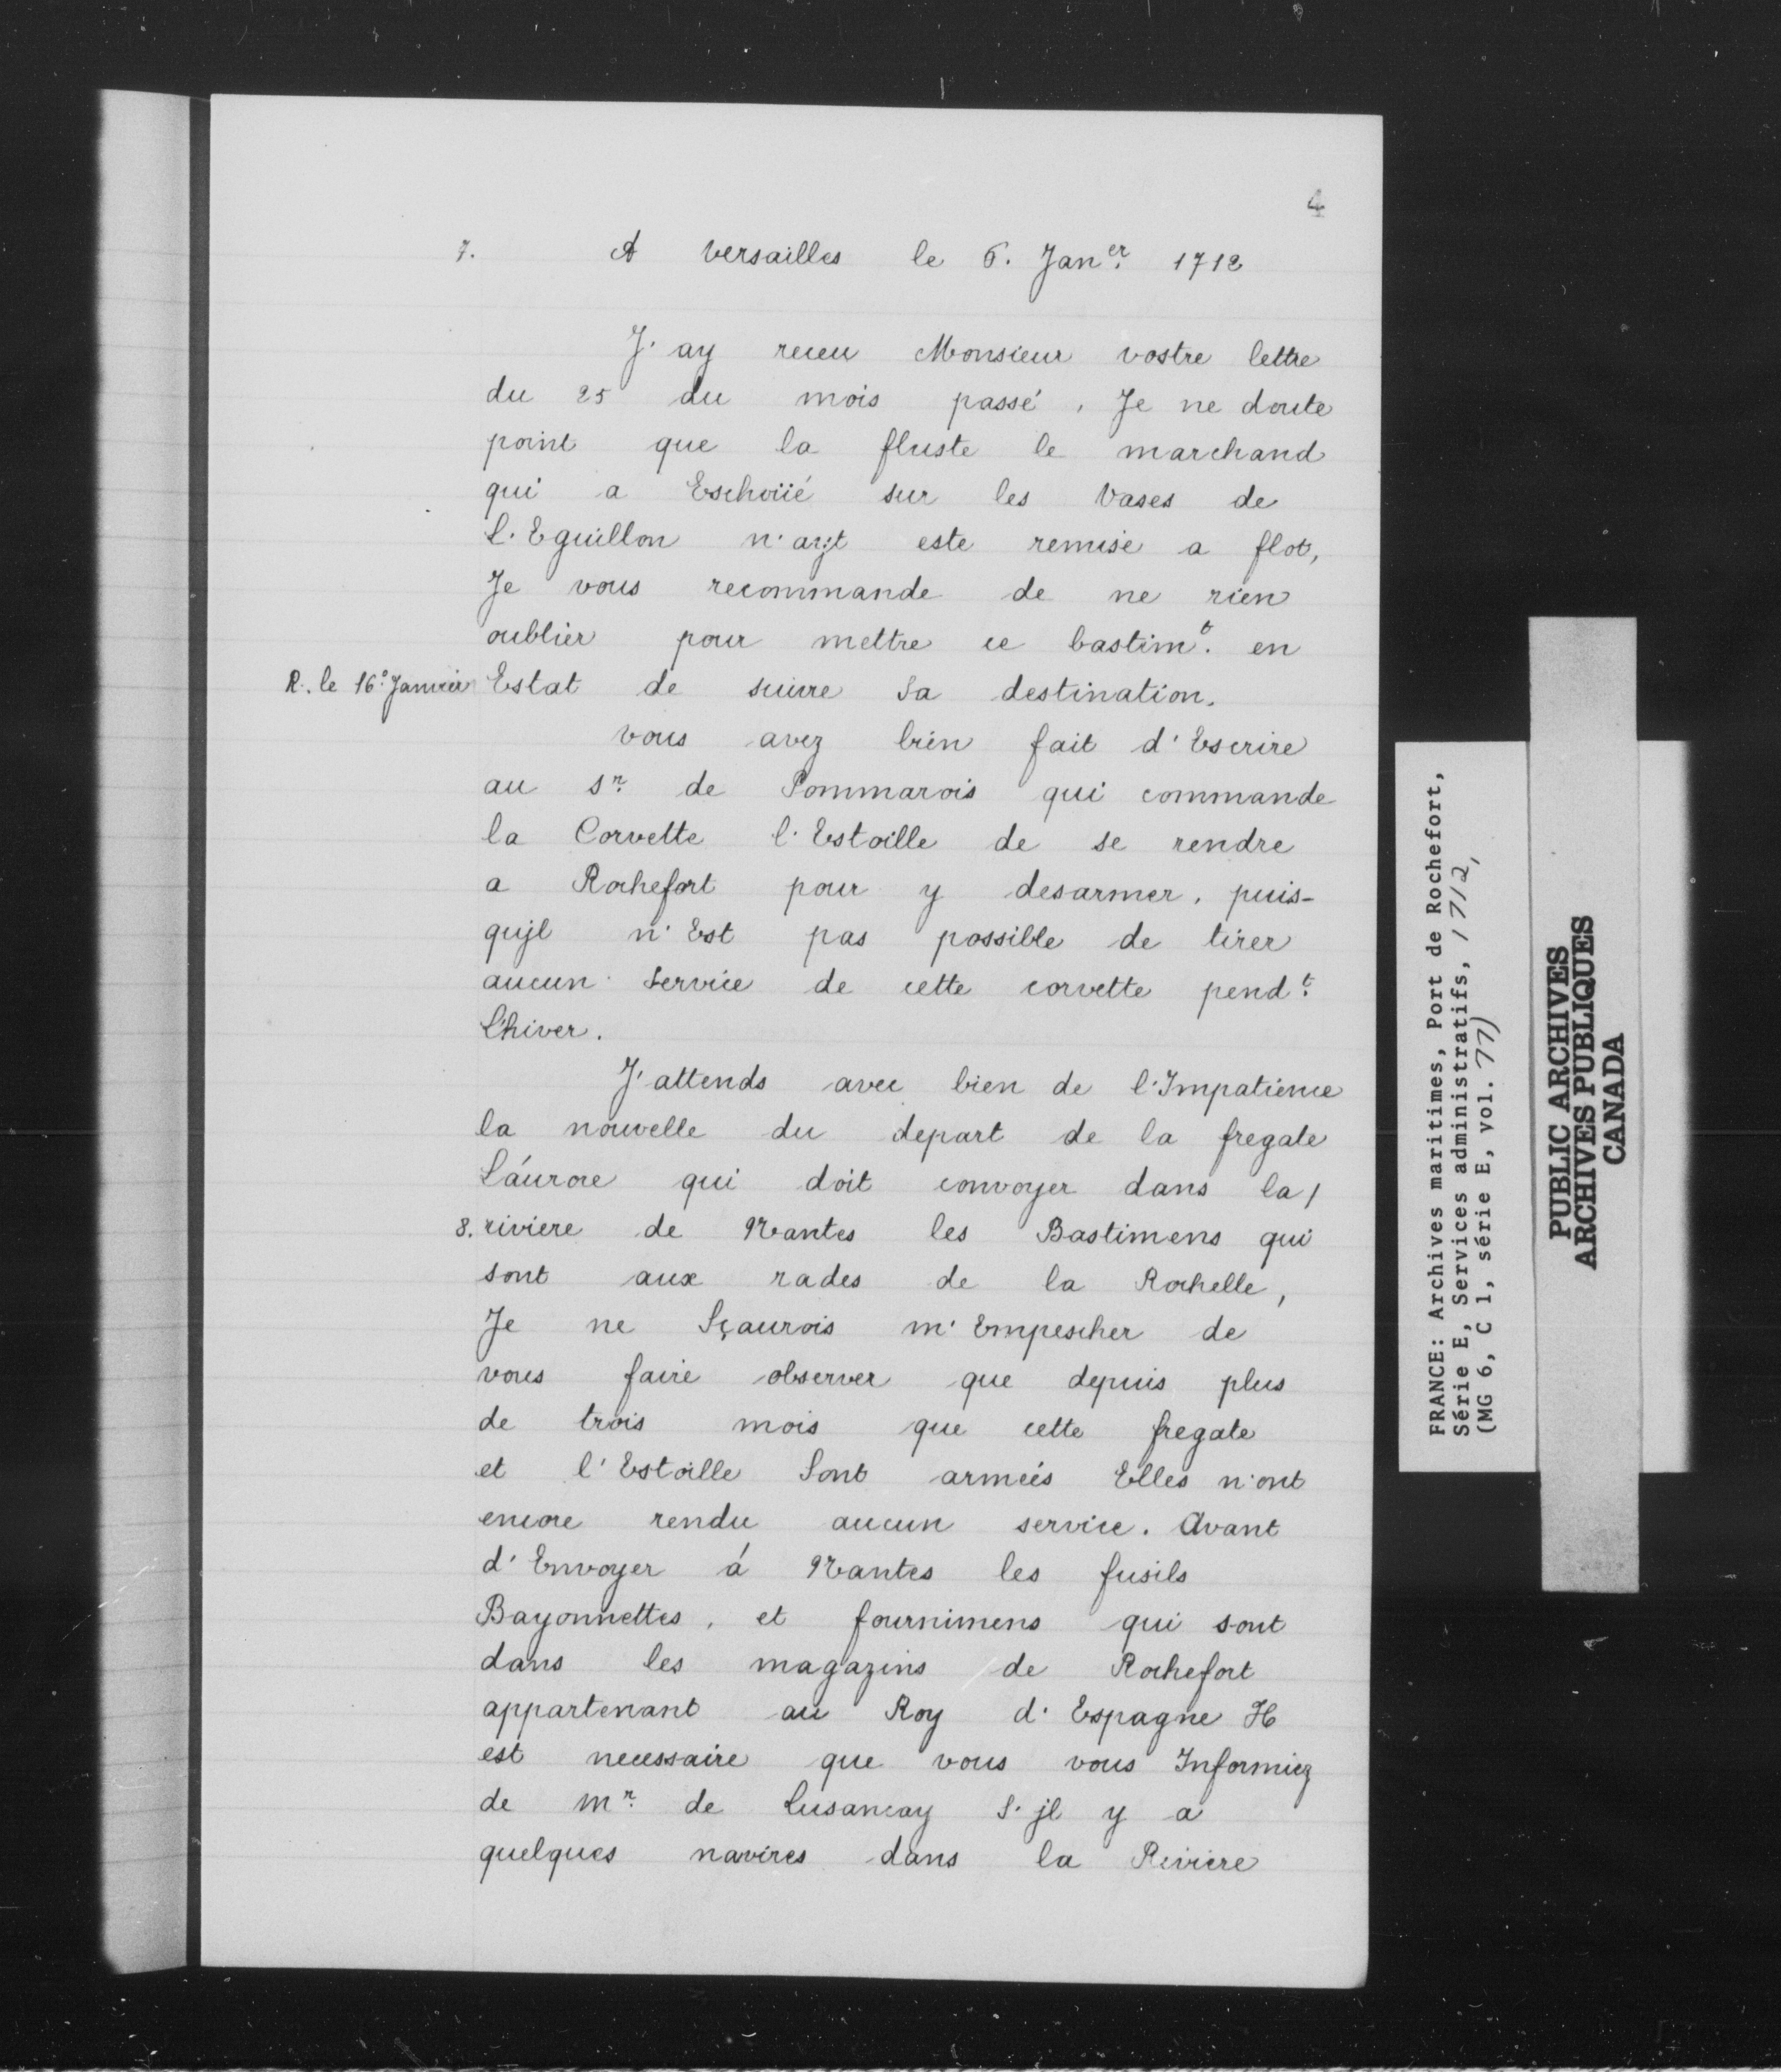 4
7. A versailles le 6. Jan.er 1712
J'ay receu Monsieur vostre lettre
du 25 du mois passé, Je ne doute
point que la fluste le marchand
qui a Eschoüé sur les Vases de
L'Eguillon n'ayt este remise a flot,
Je vous recommande de ne rien
oublier pour mettre ce bastim.t en
R. le 16.e Janvier
Estat de suivre sa destination.
vous avez bien fait d'Escrire
au s.r de Pommarois qui commande
la Corvette l'Estoille de se rendre
a Rochefort pour y desarmer, puis-
qujl n'Est pas possible de tirer
aucun service de cette corvette pend.t
L'hiver.
J'attends avec bien de l'Impatience
la nouvelle du depart de la fregate
L'aurore qui doit convoyer dans la/
8. riviere de Nantes les Bastimens qui
sont aux rades de la Rochelle,
Je ne Sçaurois m'Empescher de
vous faire observer que depuis plus
de trois mois que cette fregate
et l'Estoille sont armées Elles n'ont
encore rendu aucun service. Avant
d'Envoyer á Nantes les fusils
Bayonnettes, et fournimens qui sont
dans les magazins de Rochefort
appartenant au Roy d'Espagne Il
est necessaire que vous vous Informiez
de M.r de Lusancay s'jl y a
quelques navires dans la Riviere
FRANCE: Archives maritimes, Port de Rochefort,
Série E, Services administratifs, 1712,
(MG 6, C 1, série E, vol. 77)
PUBLIC ARCHIVES
ARCHIVES PUBLIQUES
CANADA